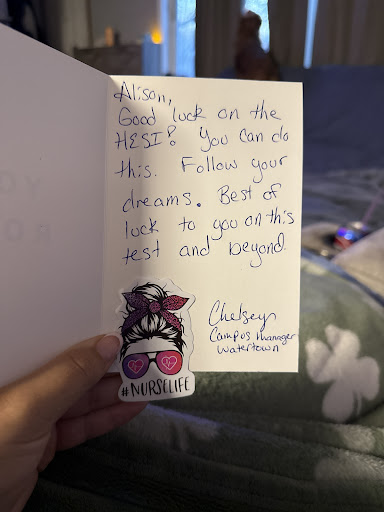 Alison,
Good luck on the
HESI! You can do
this. Follow your
dreams. Best of
luck to you on this
test and beyond.
Chelsey
Campus manager
Watertown
#NURSELIFE